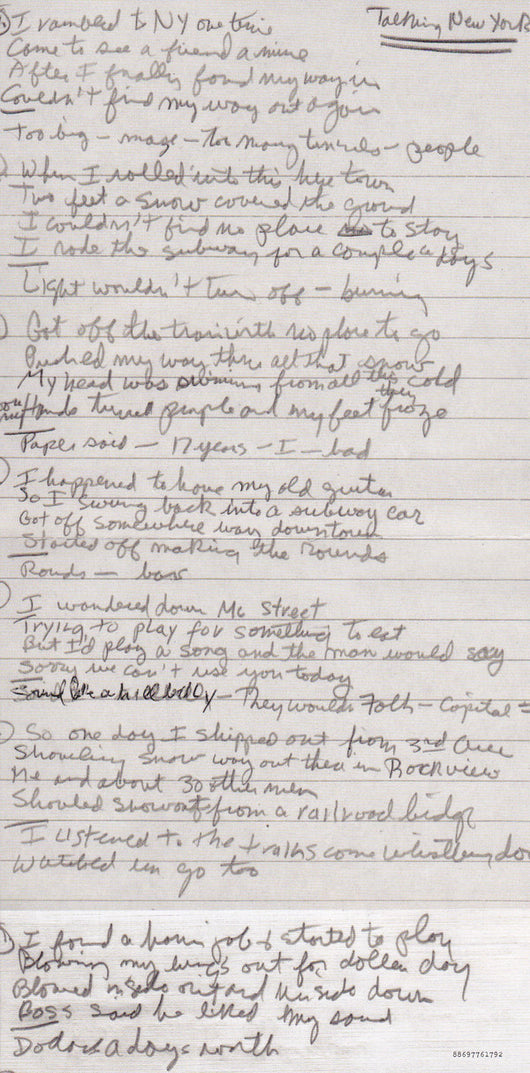 Talking New York
I rambled to NY one time
Come to see a friend a mine
After I finally found my way in
Couldn't find my way out again
Too big – maze – too many tunnels – people
When I rolled into this here town
Two feet a snow covered the ground
I couldn't find no place to stay
I rode the subway for a couple a days
Light wouldn't turn off – burning
Got off the train with no place to go
Pushed my way thru all that snow
My head was swimin from all this cold
hands turned purple and my feet they froze
Paper said – 17 years – I – bad
I happened to have my old guitar
So I swung back into a subway car
Got off somewhere way downtown
Started off making the rounds
Rounds –
I wandered down Mc Street
Trying to play for something to eat
But I'd play a song and the man would say
Sorry we can't use you today
Sound like a hillbilly – They would Folk – Capital
So one day I shipped out from 3rd Ave
Shoveling snow way out there in Rockview
Me and about 30 other men
Shoveled snow out from a railroad bidge
I listened to the trains come whistling do
Watched em go too
I found a harm job & started to play
Blowing my lungs out for dollar day
Blowed inside out and upside down
Boss said he liked my sound
Dollars a days worth
88697761792